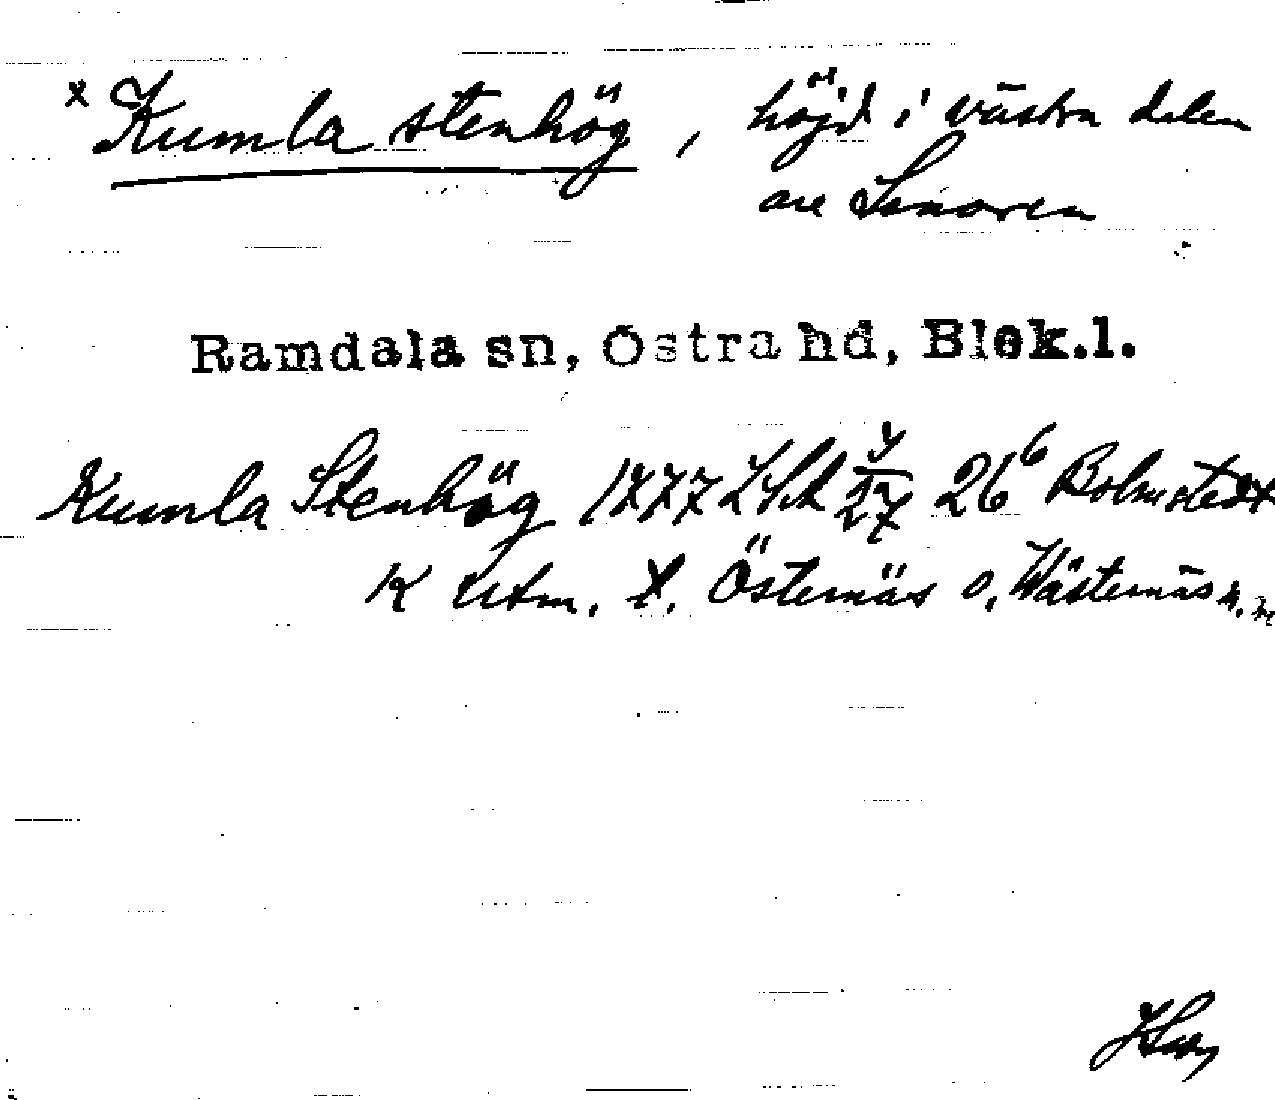 x Kumla stenhög, höjd i västra delen
av Senoren
Ramdala sn, Östra hd, Blek.l.
Kumla Stenhög 1777 LSA 26⁶ Bolmstedt
K Utm. Östernäs o. Wästernäs